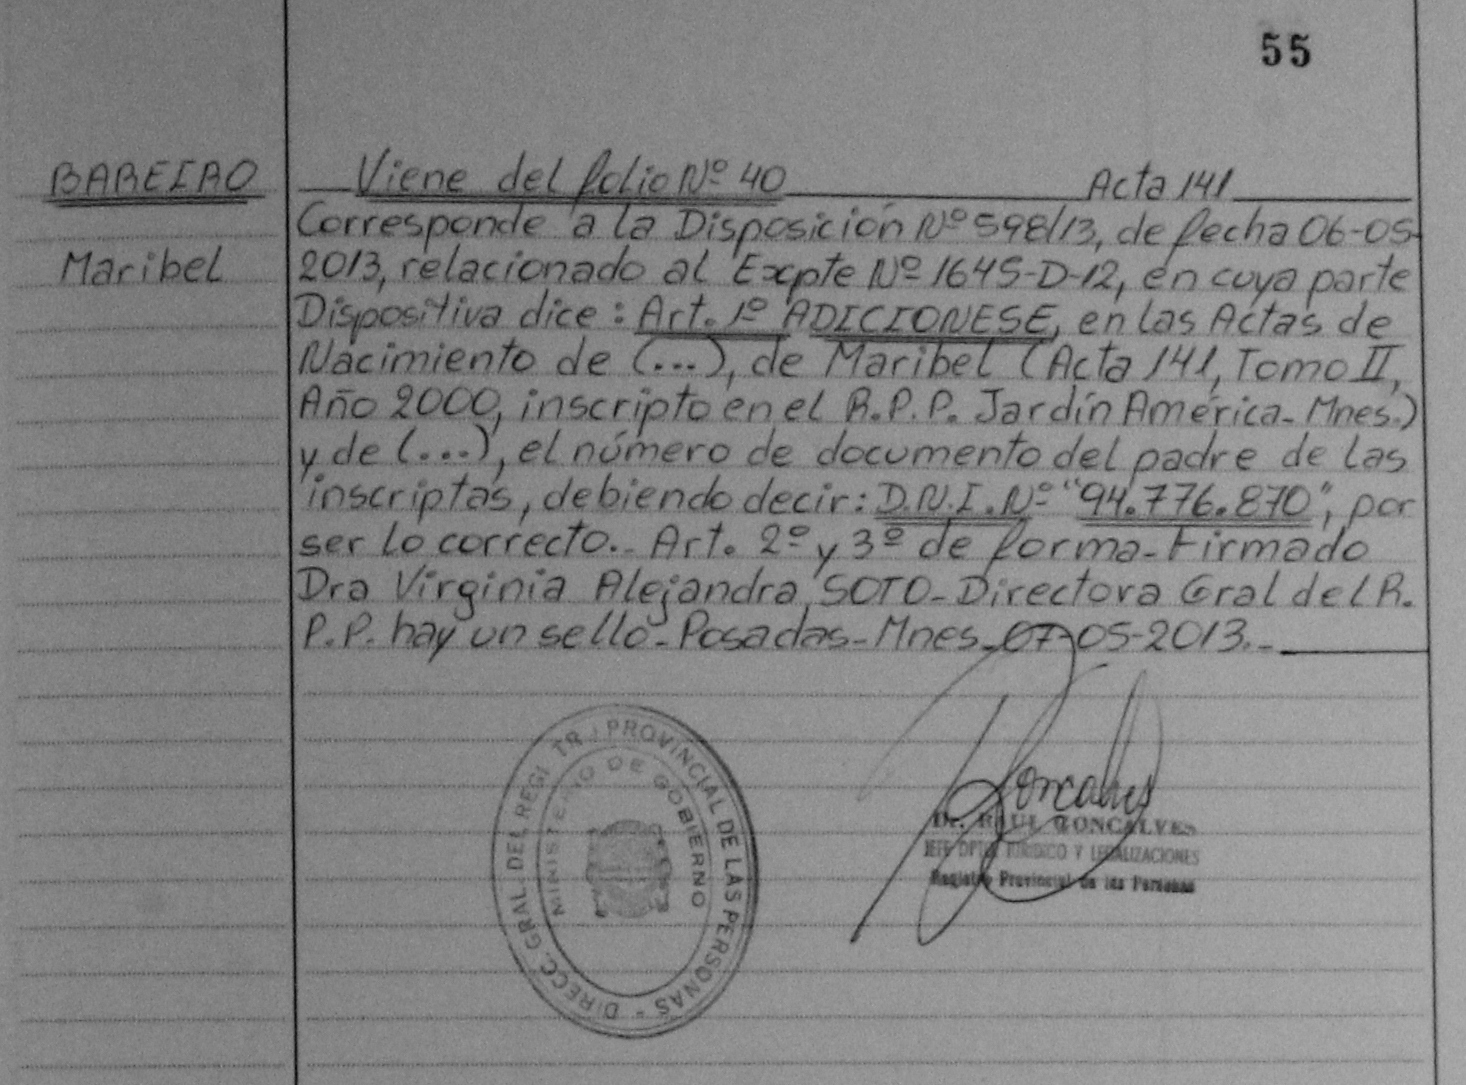 55
BAREIRO
Maribel
Viene del folio Nº 40 Acta 141
Corresponde a la Disposición Nº 598/13, de fecha 06-05-
2013, relacionado al Expte Nº 1645-D-12, en cuya parte
Dispositiva dice: Art. 1º ADICIONESE, en las Actas de
Nacimiento de (...), de Maribel (Acta 141, Tomo II,
Año 2000, inscripto en el R.P.P. Jardín América - Mnes.)
y de (...), el número de documento del padre de las
inscriptas, debiendo decir: D.N.I. Nº "94.776.870", por
ser lo correcto.- Art. 2º y 3º de forma - Firmado
Dra Virginia Alejandra SOTO - Directora Gral del R.
P.P. hay un sello - Posadas - Mnes - 07-05-2013.-
DIRECC. GRAL. DEL REGISTRO PROVINCIAL DE LAS PERSONAS -
MINISTERIO DE GOBIERNO
Goncalves
Dr. RAUL GONCALVES
JEFE DPTO. JURIDICO Y LEGALIZACIONES
Registro Provincial de las Personas